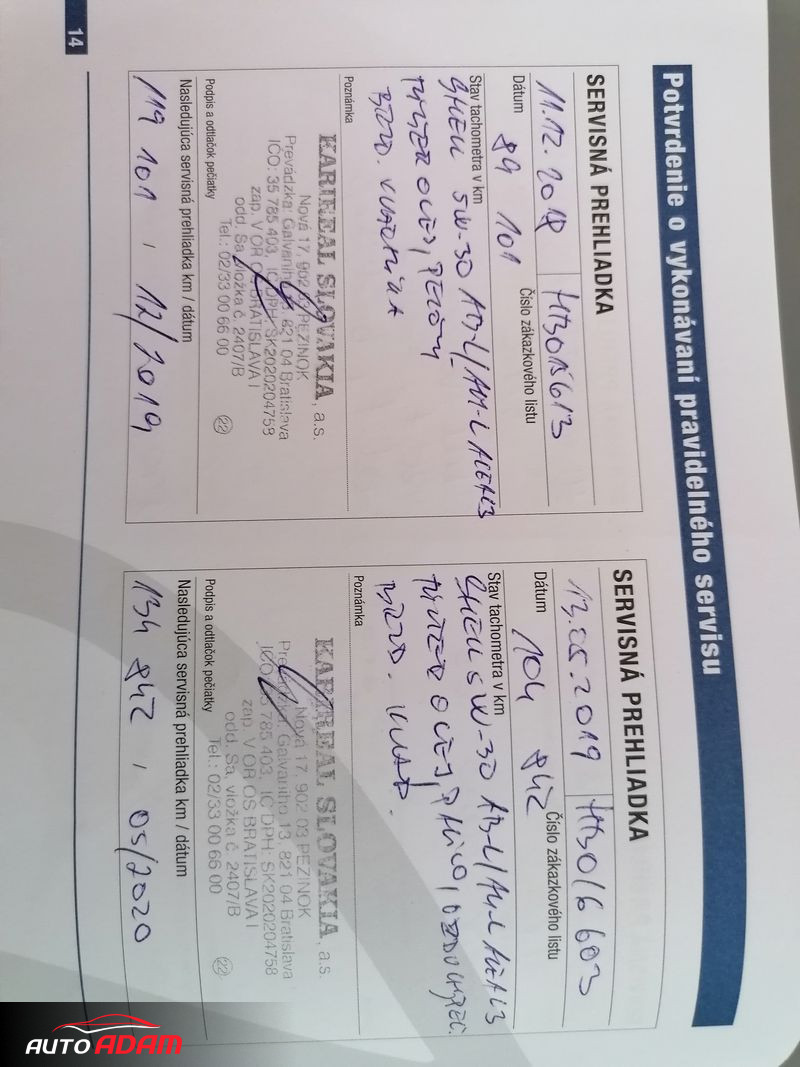 Potvrdenie o vykonávaní pravidelného servisu
SERVISNÁ PREHLIADKA
11.12.2018
Dátum
Číslo zákazkového listu
89 101
Stav tachometra v km
SHELL 5W-30
Poznámka
KARIREAL SLOVAKIA, a.s.
Nová 17, 902 03 PEZINOK
Prevádzka: Galvaniho 13, 821 04 Bratislava
IČO: 35 785 403, IČ DPH: SK2020204758
zap. V OR OS BRATISLAVA I
odd. Sa, vložka č. 2407/B
Tel.: 02/33 00 66 00
22
Podpis a odtlačok pečiatky
Nasledujúca servisná prehliadka km / dátum
119 101 / 12/2019
SERVISNÁ PREHLIADKA
13.05.2019
Dátum
Číslo zákazkového listu
104 842
Stav tachometra v km
SHELL 5W-30
Poznámka
KARIREAL SLOVAKIA, a.s.
Nová 17, 902 03 PEZINOK
Prevádzka: Galvaniho 13, 821 04 Bratislava
IČO: 35 785 403, IČ DPH: SK2020204758
zap. V OR OS BRATISLAVA I
odd. Sa, vložka č. 2407/B
Tel.: 02/33 00 66 00
22
Podpis a odtlačok pečiatky
Nasledujúca servisná prehliadka km / dátum
134 842 / 05/2020
14
AUTO ADAM